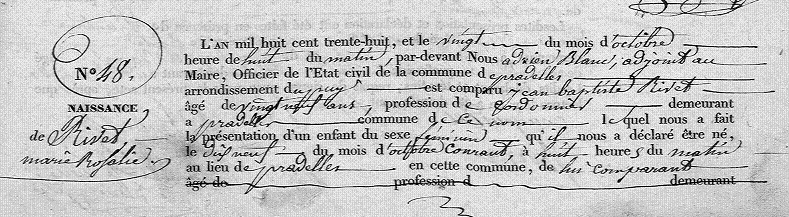 N.º 48.
NAISSANCE
de Rivet
marie Rosalie.
L'AN mil huit cent trente-huit, et le vingt du mois d'octobre
heure de huit du matin, par-devant Nous adrien Blanc, adjoint au
Maire, Officier de l'Etat civil de la commune de pradelles
arrondissement du puy est comparu jean baptiste Rivet
âgé de vingt neuf ans, profession de cordonnier demeurant
a pradelles commune de ce nom lequel nous a fait
la présentation d'un enfant du sexe féminin qu'il nous a déclaré être né,
le dix neuf du mois d'octobre Courant, à huit heures du matin
au lieu de pradelles en cette commune, de lui comparant
âgé de profession d demeurant